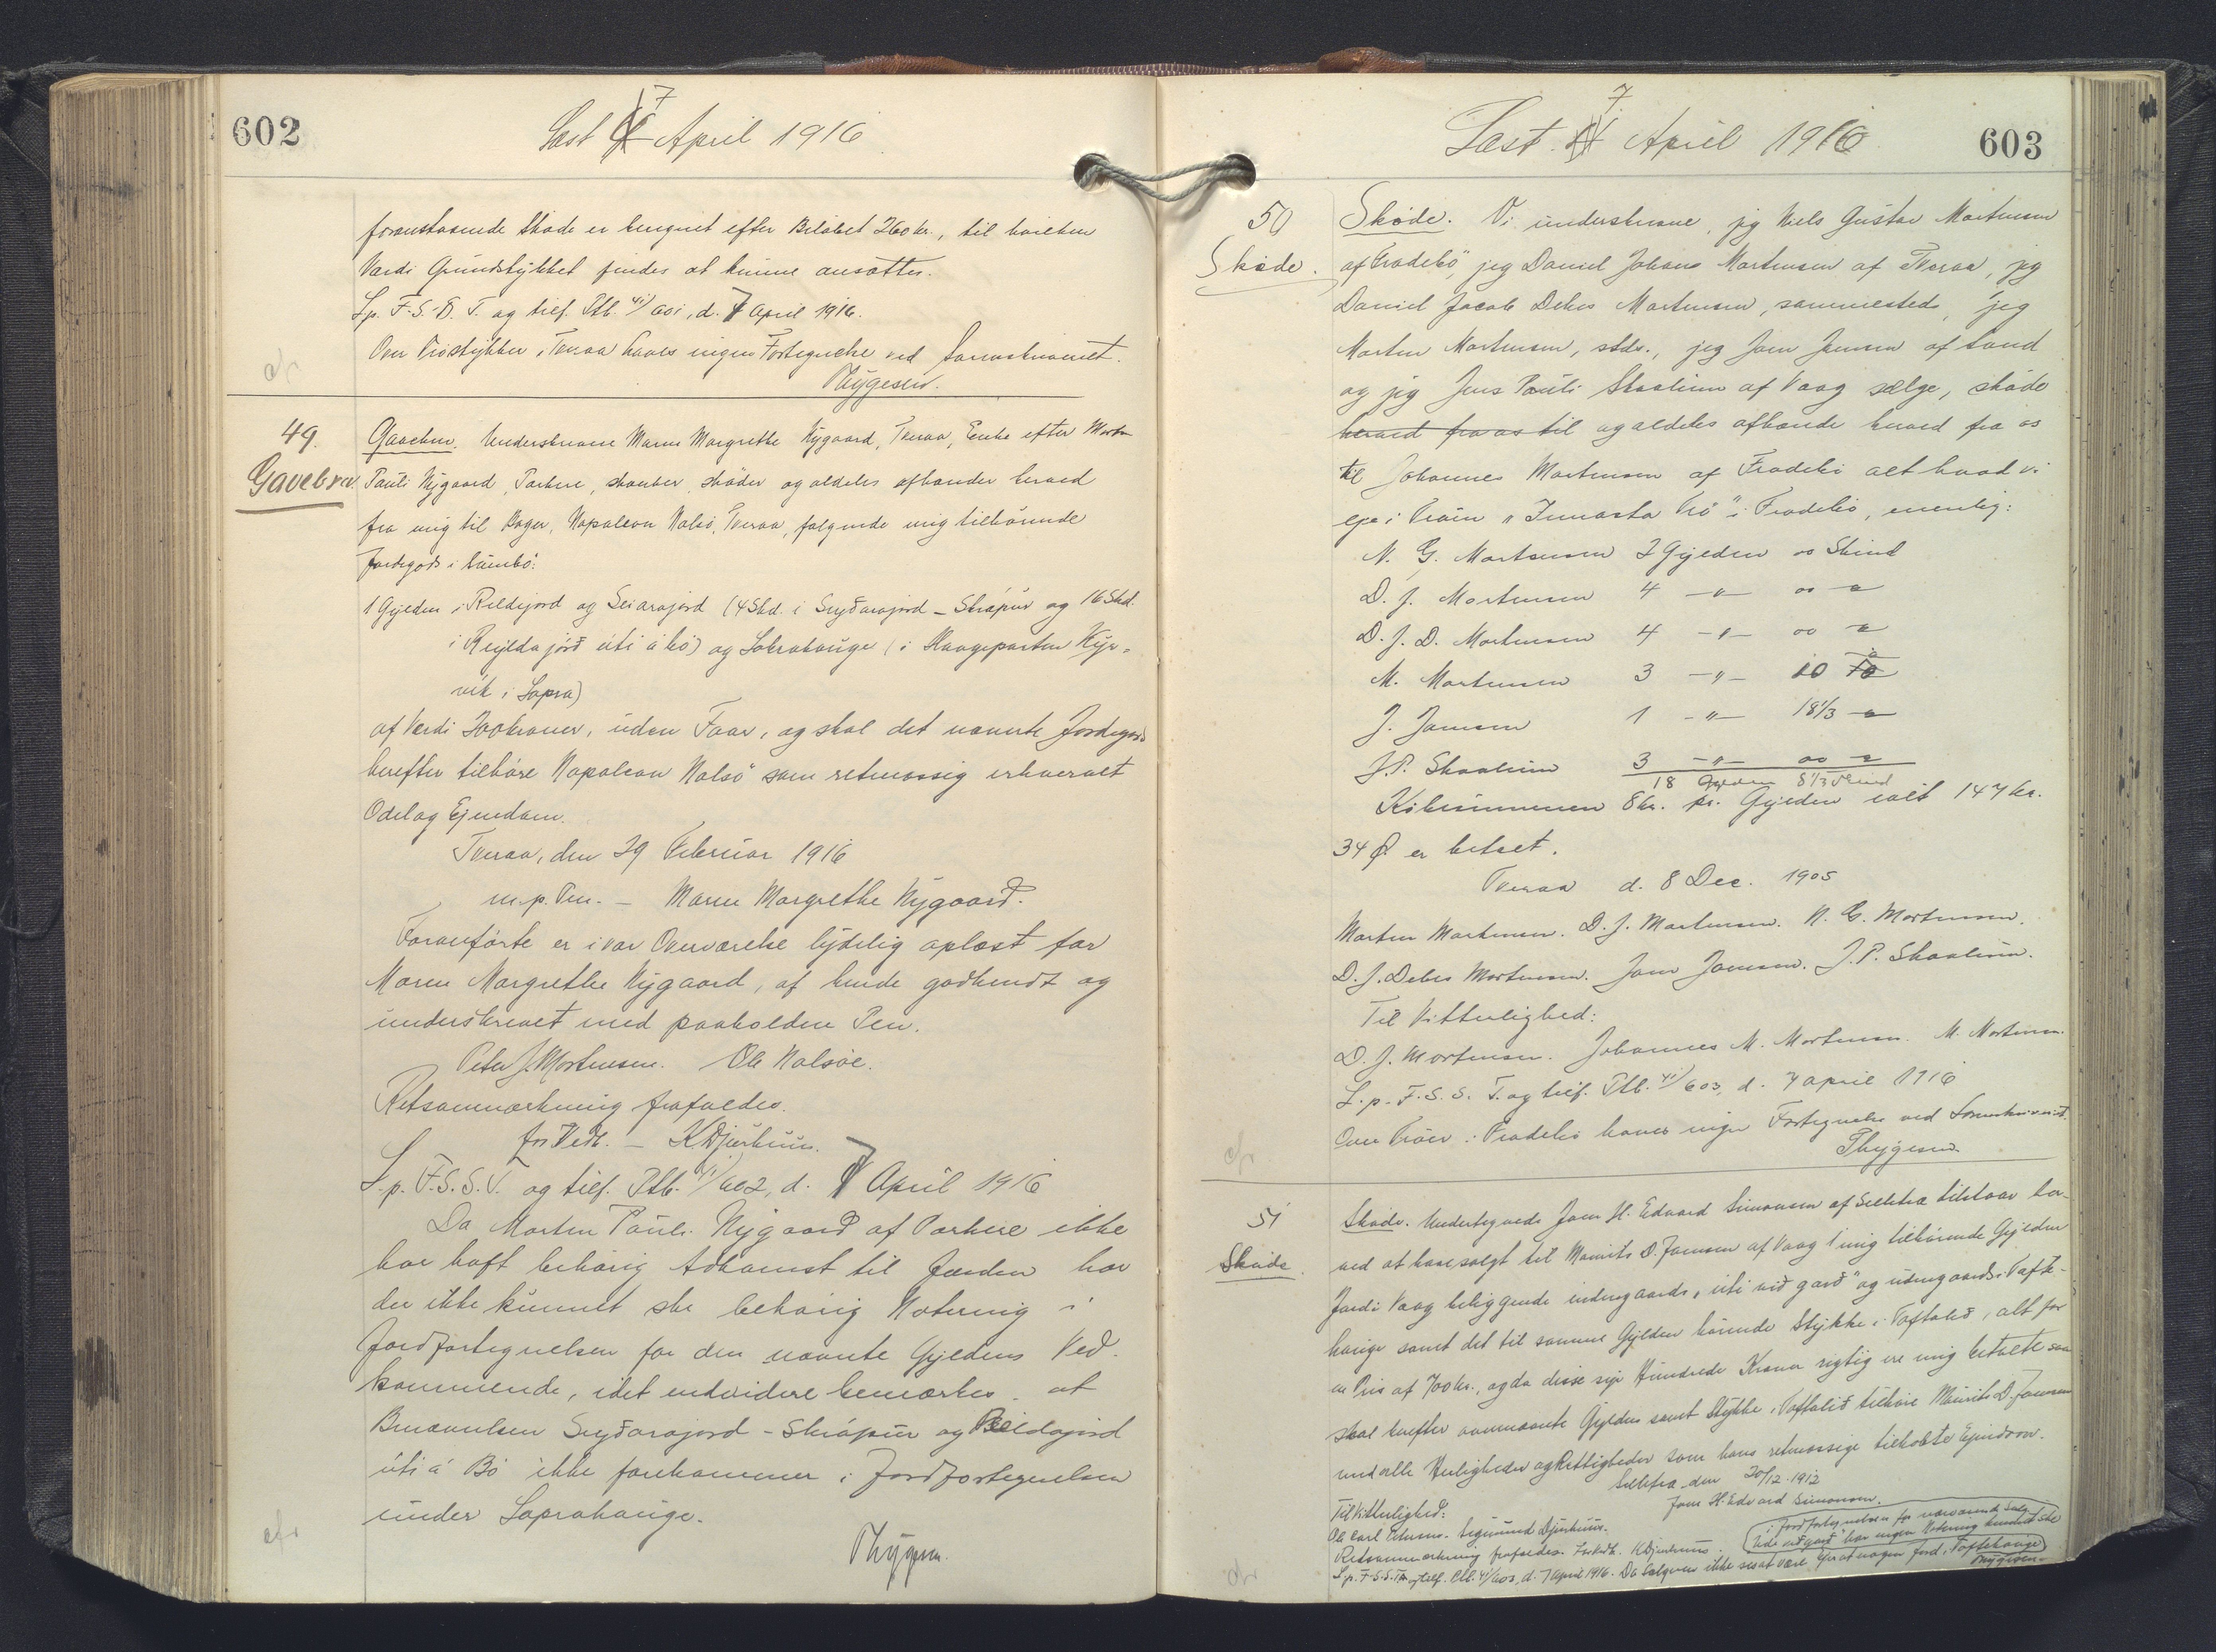 602
Læst 7 April 1916
foranstaaende Skøde er beregnet efter Beløbet 260 kr., til hvilken
Værdi Grundstykket findes at kunne ansættes.
L.p. F.S.S. T. og tilf. Ptb. 41/601, d. 7 April 1916.
Over Trøstykker i Tveraa haves ingen Fortegnelse ved Sorenskriveriet.
Thygesen.
49.
Gavebrev.
Gavebrev. Underskrevne Maren Margrethe Nygaard, Tveraa, Enke efter Morten
Pauli Nygaard, Porkere, skænker, skøder og aldeles afhænder herved
fra mig til Bager, Napoleon Nolsø, Tveraa, følgende mig tilhørende
Jordegods i Sumbø:
1 Gylden i Reldejord og Seiarajord (4 Skd. i Suydarajord - Skrápur og 16 Skd.
i Reyldajørð úti á bø) og Lobrahauge (i Haugeparten Kyr-
vík i Lopra)
af Værdi 200 kroner, uden Faar, og skal det nævnte Jordegods
herefter tilhøre Napoleon Nolsø som retmæssig erhvervet
Odel og Ejendom.
Tveraa, den 29 Februar 1916
m.p. Pen. - Maren Margrethe Nygaard.
Foranførte er i vor Overværelse lydelig oplæst for
Maren Margrethe Nygaard, af hende godkendt og
underskrevet med paaholden Pen.
Peter J. Mortensen. Ole Nolsøe.
Retsanmærkning frafaldes.
for Vedk. - K. Djurhuus.
L.p. F.S.S.T. og tilf. Ptb. 41/602, d. 7 April 1916
Da Morten Pauli Nygaard af Porkere ikke
har haft behørig Adkomst til Jorden har
der ikke kunnet ske behørig Notering i
Jordfortegnelsen for den nævnte Gyldens Ved-
kommende, idet endvidere bemærkes at
Benævnelsen Suydarajord - Skrápur og Reildajord
úti á Bø ikke forekommer i Jordfortegnelsen
under Loprahauge.
Thygesen.
603
Læst 7 April 1916
50
Skøde.
Skøde. Vi underskrevne, jeg Niels Gustav Mortensen
af Frodebø, jeg Daniel Johans Mortensen af Tveraa, jeg
Daniel Jacob Debes Mortensen, sammesteds, jeg
Morten Mortensen, stds., jeg Joen Joensen af Sand
og jeg Jens Pauli Skaalum af Vaag sælge, skøde
herved fra os til og aldeles afhænde herved fra os
til Johannes Mortensen af Frodebø alt hvad vi
eje i Trøen "Innasta trø" i Frodebø, nemlig:
N. G. Mortensen 2 Gylden 00 Skind
D. J. Mortensen 4 -"- 00 "
D. J. D. Mortensen 4 -"- 00 "
M. Mortensen 3 -"- 10 "
J. Joensen 1 -"- 18 1/3 "
J.P. Skaalum 3 -"- 00 "
18 Gylden 8 1/3 Skind
Købesummen 8 kr. pr. Gylden ialt 147 kr.
34 Ø er betalt.
Tveraa d. 8 Dec. 1905
Morten Mortensen. D. J. Mortensen. N. G. Mortensen.
D. J. Debes Mortensen. Joen Joensen. J. P. Skaalum.
Til Vitterlighed:
D. J. Mortensen. Johannes M. Mortensen. M. Mortensen.
L.p. F.S.S. T. og tilf. Ptb. 41/603, d. 7 april 1916
Over Trøer i Frodebø haves ingen Fortegnelse ved Sorenskriveriet.
Thygesen.
51
Skøde.
Skøde. Undertegnede Joen H. Edvard Simonsen af Selletræ tilstaar her-
ved at have solgt til Maurits D. Joensen af Vaag 1 mig tilhørende Gylden
Jord i Vaag beliggende indengaards "úti við garð" og udengaards i Tofte-
hauge samt det til samme Gylden hørende Stykke i Toftalið, alt for
en Pris af 700 kr., og da disse syv Hundrede Kroner rigtig ere mig betalte saa
skal herefter ovennævnte Gylden samt Stykke i Toftalið tilhøre Maurits D. Joensen
med alle Herligheder og Rettigheder som hans retmæssige tilkøbte Ejendom.
Selletræ den 20/12 1912
Joen H. Edvard Simonsen.
Til Vitterlighed:
Ole Carl Petersen. Sigmund Djurhuus.
Retsanmærkning frafaldes. For Vedk. K. Djurhuus.
L.p. F.S.S.T. og tilf. Ptb. 41/603, d. 7 April 1916. Da Sælgeren ikke ses at være Ejer af nogen Jord i Toftehauge
i Jordfortegnelsen for nærværende Salg
"úti við garð" har ingen Notering kunnet ske
Thygesen.